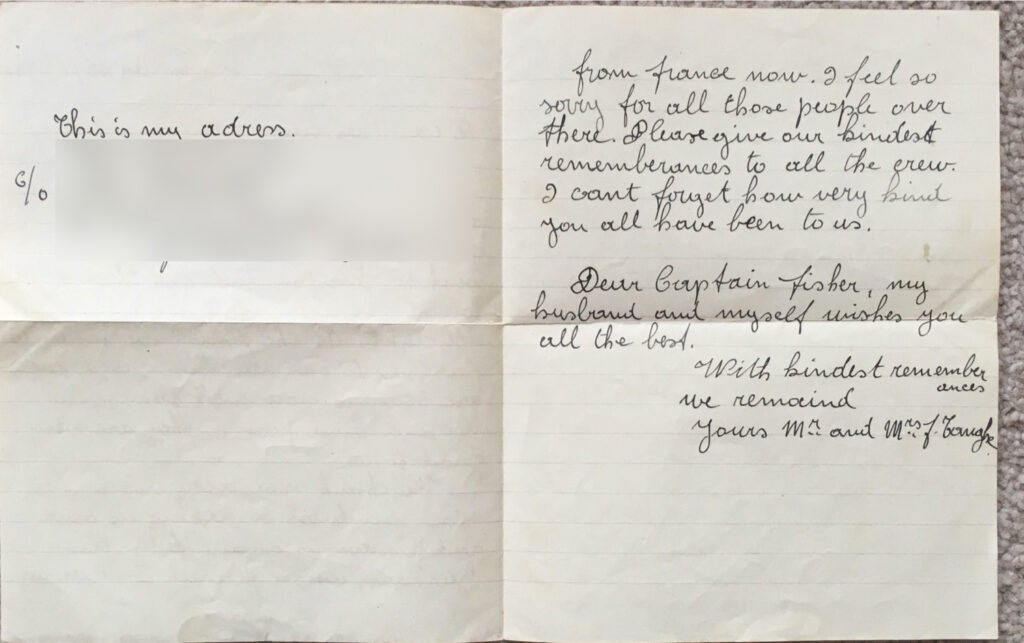 This is my adress.
C/o
from france now. I feel so
sorry for all those people over
there. Please give our kindest
rememberances to all the crew.
I cant forget how very kind
you all have been to us.
Dear Captain fisher, my
husband and myself wishes you
all the best.
With kindest remember
ances
we remaind
Yours Mr. and Mrs. f.